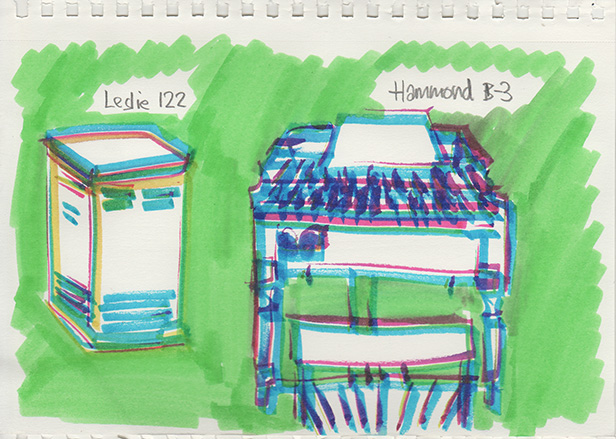 Leslie 122
Hammond B-3